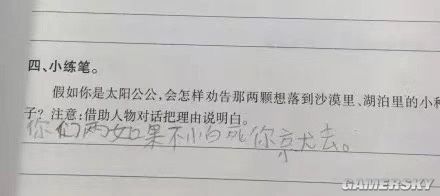 四、小练笔。
假如你是太阳公公，会怎样劝告那两颗想落到沙漠里、湖泊里的小种
子？注意：借助人物对话把理由说明白。
你们两如果不小白死你京尤去。
GAMERSKY